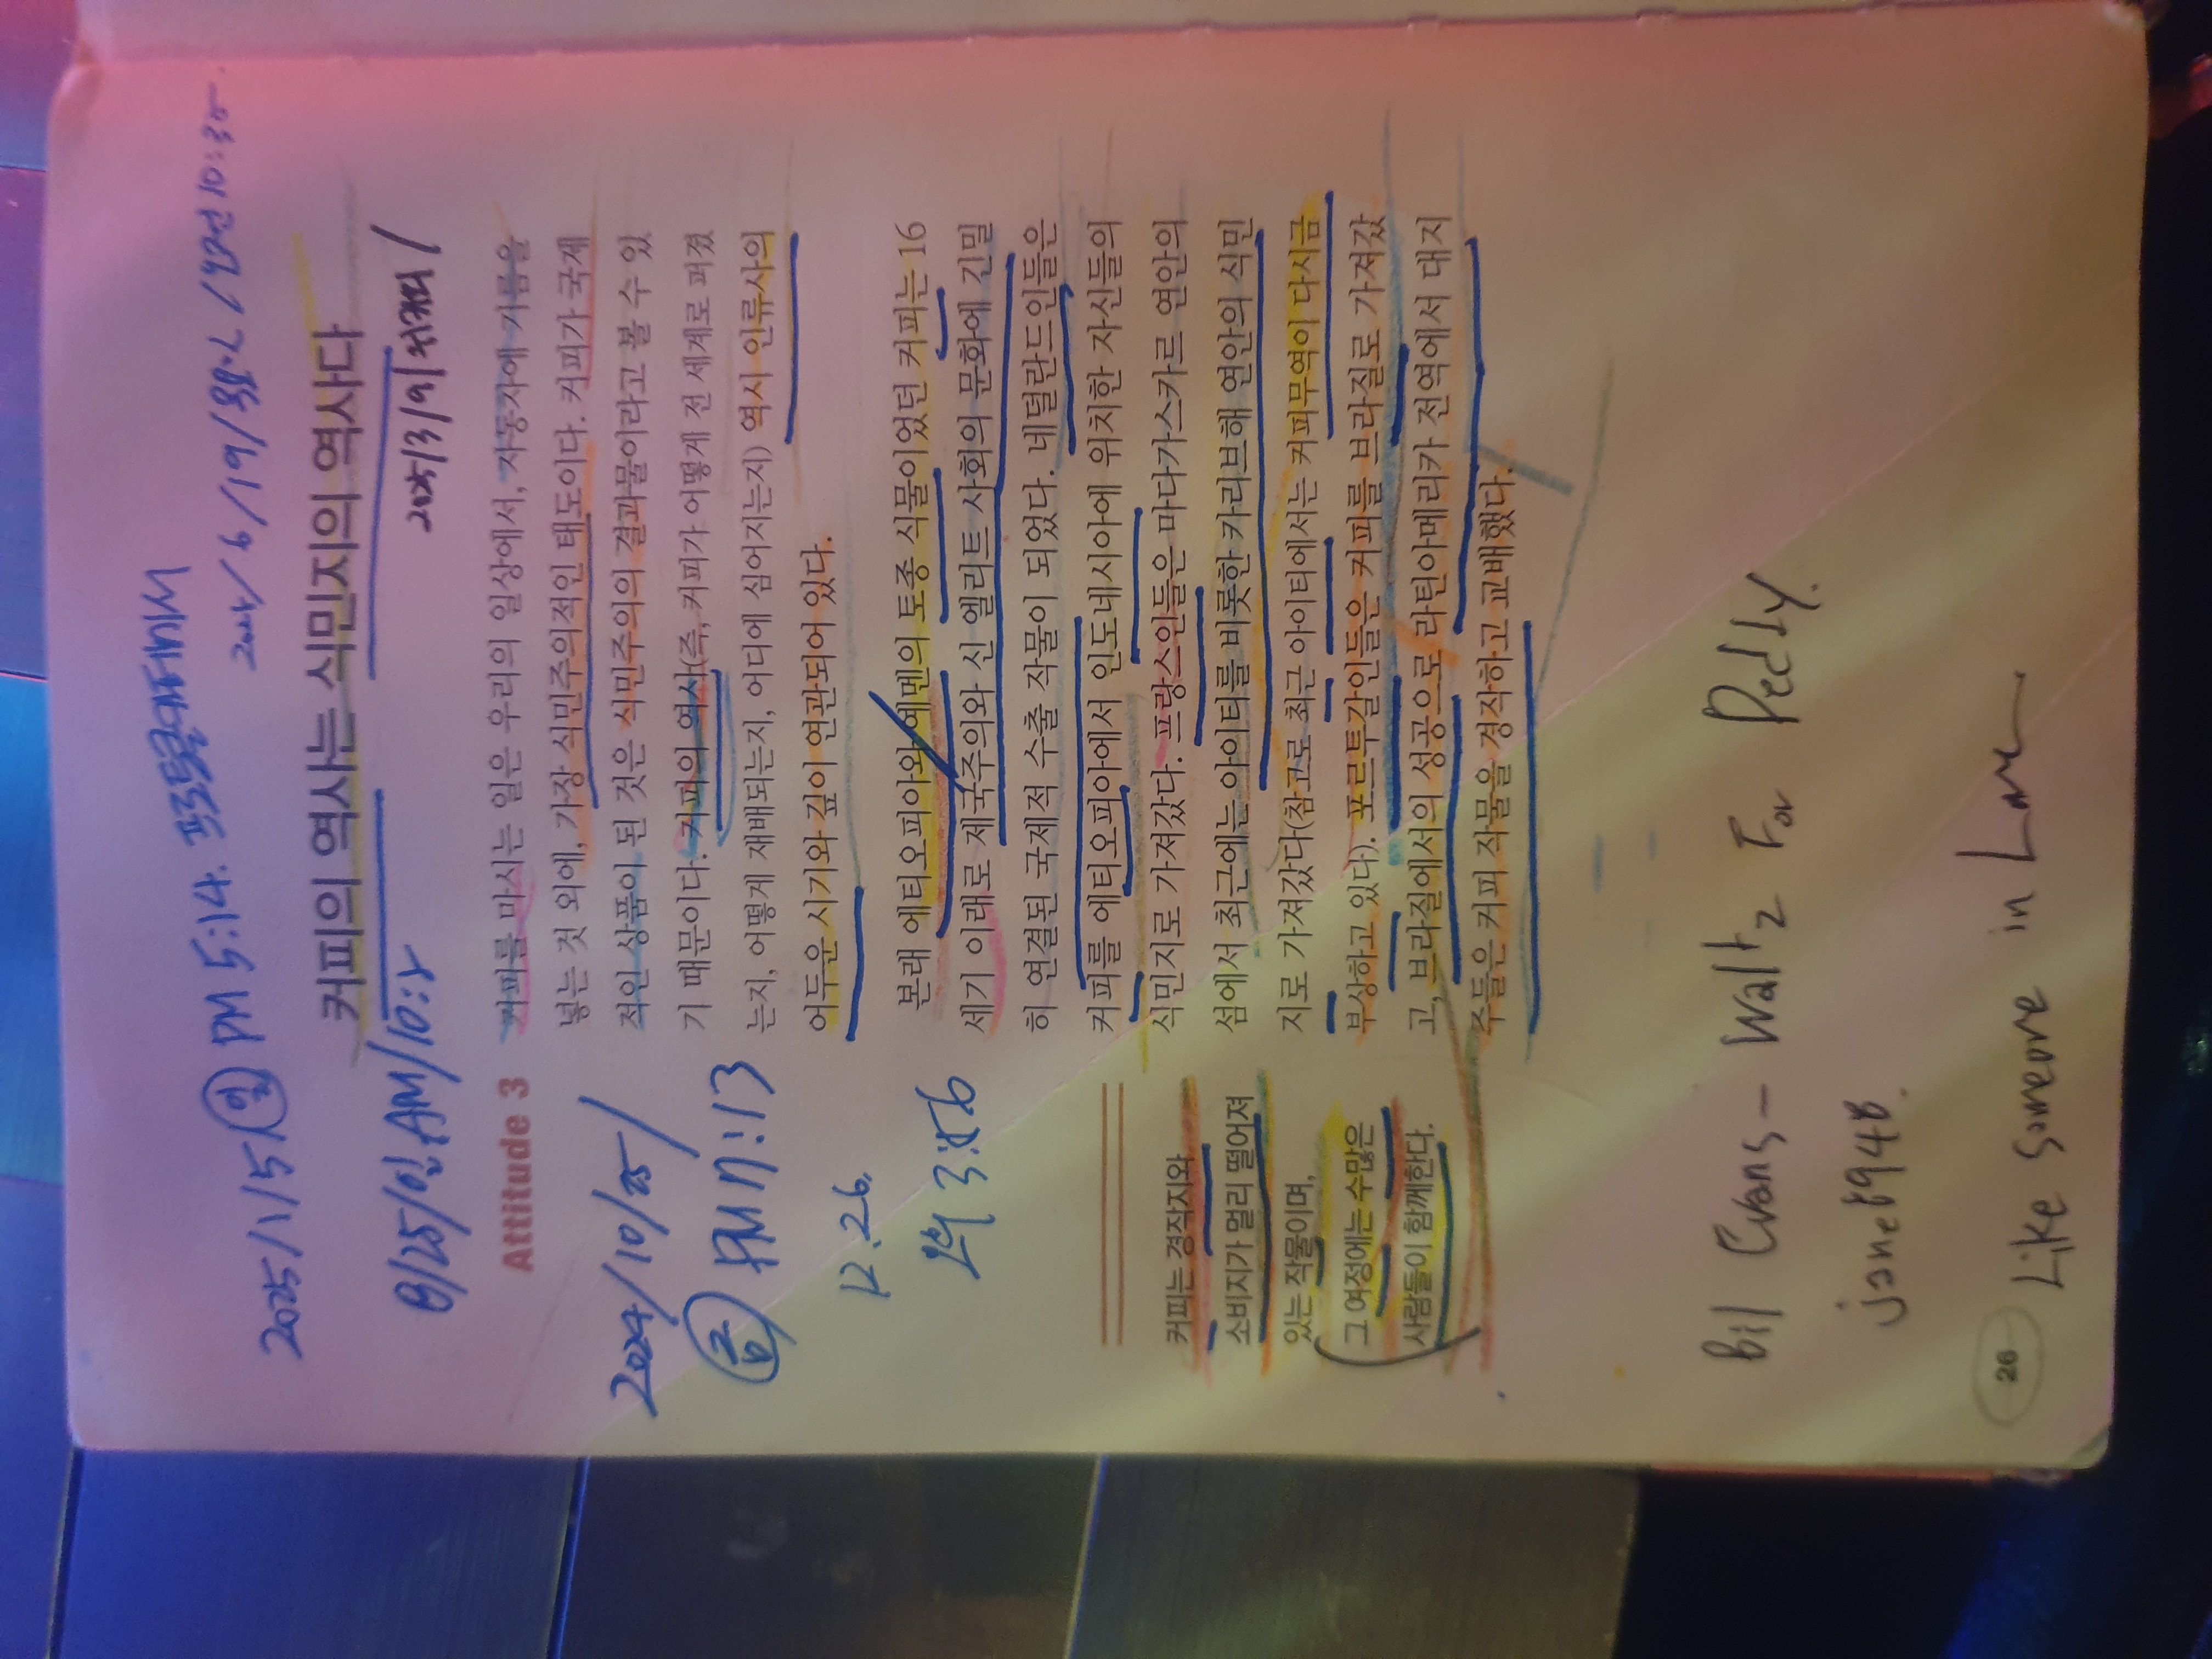 2025/1/5/일 PM 5:14.
2024/6/19/
커피의 역사는 식민지의 역사다
8/25/일.AM/10:
2025/3/9/
Attitude 3
커피를 마시는 일은 우리의 일상에서, 자동차에 기름을
넣는 것 외에, 가장 식민주의적인 태도이다. 커피가 국제
적인 상품이 된 것은 식민주의의 결과물이라고 볼 수 있
기 때문이다. 커피의 역사(즉, 커피가 어떻게 전 세계로 퍼졌
는지, 어떻게 재배되는지, 어디에 심어지는지) 역시 인류사의
어두운 시기와 깊이 연관되어 있다.
2024/10/25/
금 PM 11:13
12.26.
본래 에티오피아와 예멘의 토종 식물이었던 커피는 16
세기 이래로 제국주의와 신 엘리트 사회의 문화에 긴밀
히 연결된 국제적 수출 작물이 되었다. 네덜란드인들은
커피를 에티오피아에서 인도네시아에 위치한 자신들의
식민지로 가져갔다. 프랑스인들은 마다가스카르 연안의
섬에서 최근에는 아이티를 비롯한 카리브해 연안의 식민
지로 가져갔다(참고로 최근 아이티에서는 커피무역이 다시금
부상하고 있다). 포르투갈인들은 커피를 브라질로 가져갔
고, 브라질에서의 성공으로 라틴아메리카 전역에서 대지
주들은 커피 작물을 경작하고 교배했다.
커피는 경작지와
소비지가 멀리 떨어져
있는 작물이며,
그 여정에는 수많은
사람들이 함께한다.
Bill Evans - Waltz For Deddy.
Like Someone in Love
26